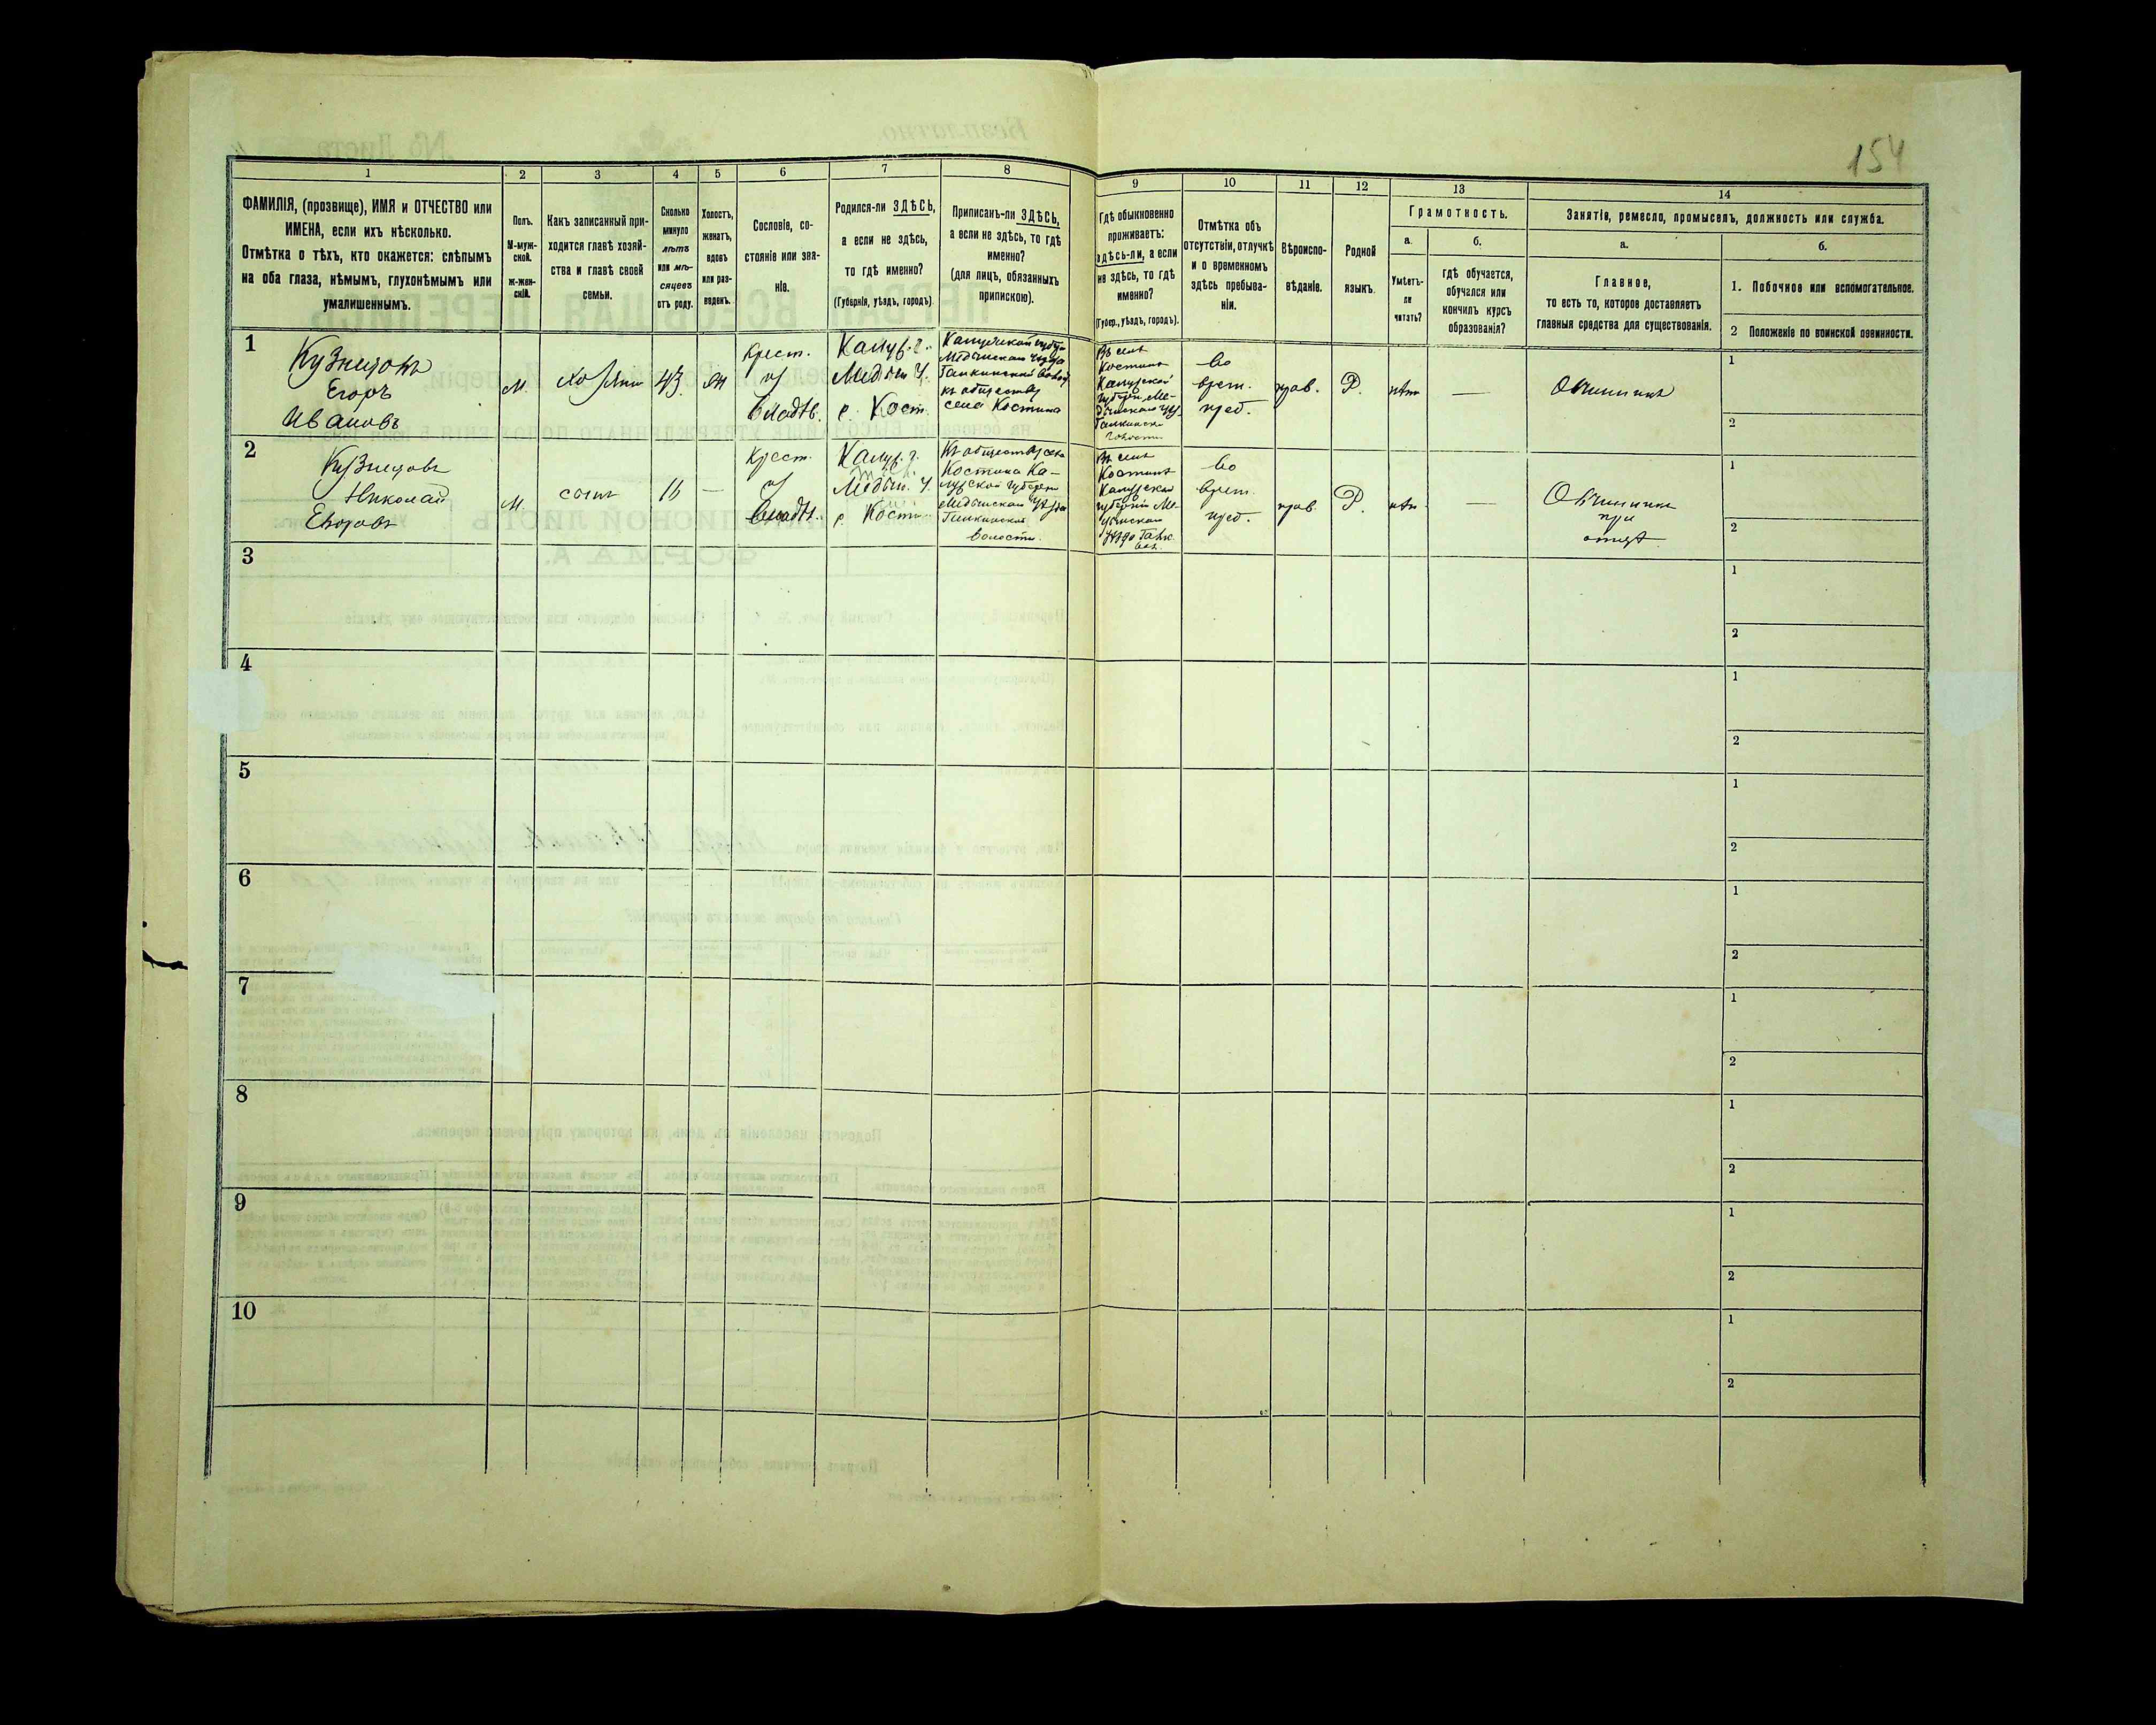 154
1 2 3 4 5 6 7 8 9 10 11 12 13 14
ФАМИЛІЯ, (прозвище), ИМЯ и ОТЧЕСТВО или
ИМЕНА, если ихъ нѣсколько.
Отмѣтка о тѣхъ, кто окажется: слѣпымъ
на оба глаза, нѣмымъ, глухонѣмымъ или
умалишеннымъ.
Полъ.
М-муж-
ской.
ж-жен-
скій.
Какъ записанный при-
ходится главѣ хозяй-
ства и главѣ своей
семьи.
Сколько
минуло
лѣтъ
или мѣ-
сяцевъ
отъ роду.
Холостъ,
женатъ,
вдовъ
или раз-
веденъ.
Сословіе, со-
стояніе или зва-
ніе.
Родился-ли ЗДѢСЬ,
а если не здѣсь,
то гдѣ именно?
(Губернія, уѣздъ, городъ).
Приписанъ-ли ЗДѢСЬ,
а если не здѣсь, то гдѣ
именно?
(для лицъ, обязанныхъ
припискою).
Гдѣ обыкновенно
проживаетъ:
здѣсь-ли, а если
не здѣсь, то гдѣ
именно?
(Губер., уѣздъ, городъ).
Отмѣтка объ
отсутствіи, отлучкѣ
и о временномъ
здѣсь пребыва-
ніи.
Вѣроиспо-
вѣданіе.
Родной
языкъ.
Грамотность.
а.
Умѣетъ-
ли
читать?
б.
гдѣ обучается,
обучался или
кончилъ курсъ
образованія?
Занятіе, ремесло, промыселъ, должность или служба.
а.
Главное,
то есть то, которое доставляетъ
главныя средства для существованія.
б.
1. Побочное или вспомогательное.
2 Положеніе по воинской повинности.
1
Кузнецовъ
Егоръ
Ивановъ
М.
Хозяин
43
ж
Крест.
из
владѣ.
Калуж. г.
Медын У.
с. Кост.
Калужской губер
Медынскаго уѣзда
Галкинской волос
къ обществу
села Костина
Въ селе
Костине
Калужской
губерн. Ме-
дынскаго уез
Галкинск
волости
во
врем.
преб.
прав.
Р.
нѣт
—
Овчинник
1
2
2
Кузнецовъ
Николай
Егоровъ
М.
сынъ
16
—
Крест.
из
владѣ.
Калуж. г.
Медын. У.
с. Кости
Къ обществу села
Костина Ка-
лужской губерн
Медынскаго Уѣзда
Галкинской
волости.
Въ селе
Костине
Калужской
губерніи Ме-
дынскаго
Уѣзда Галк.
вол.
во
врем.
преб.
прав.
Р.
нѣт
—
Овчинник
при
отцѣ
1
2
3
1
2
4
1
2
5
1
2
6
1
2
7
1
2
8
1
2
9
1
2
10
1
2